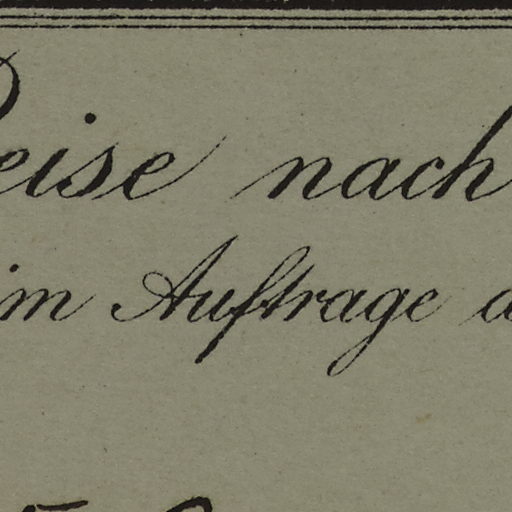 Reise nach
im Auftrage